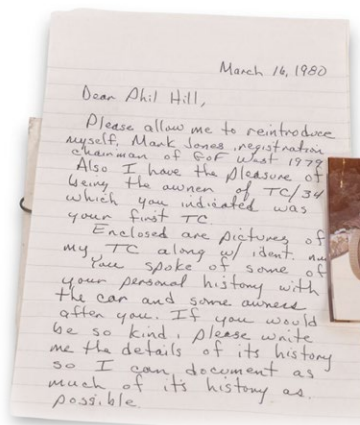 March 16, 1980
Dear Phil Hill,
Please allow me to reintroduce
myself, Mark Jones, registration
chairman of GoF West 1979
Also I have the pleasure of
being the owner of TC/34
which you indicated was
your first TC.
Enclosed are pictures of
my TC along w/ ident. nu
You spoke of some of
your personal history with
the car and some owners
after you. If you would
be so kind, please write
me the details of its history
so I can document as
much of its history as
possible.